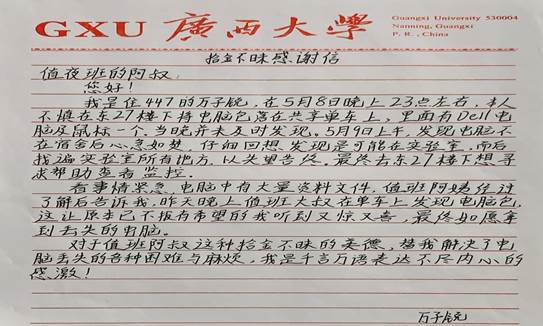 GXU 廣西大學
Guangxi University 530004
Nanning, Guangxi
P. R., China
拾金不昧感谢信
值夜班的阿叔：
您好！
我是住447的万子锐，在5月8日晚上23点左右，本人
不慎在东27楼下将电脑包落在共享单车上，里面有Dell电
脑及鼠标一个。当晚并未及时发现。5月9日上午，发现电脑不
在宿舍后心急如焚，仔细回想，发现是可能在实验室，而后
找遍实验室所有地方，以失望告终。最终去东27楼下想寻
求帮助查看监控。
看事情紧急，电脑中有大量资料文件，值班阿姨经过
了解后告诉我，昨天晚上值班大叔在单车上发现电脑包，
这让原本已不报有希望的我听到又惊又喜，最终如愿拿
到丢失的电脑。
对于值班阿叔这种拾金不昧的美德，替我解决了电
脑丢失的各种困难与麻烦，我是千言万语表达不尽内心的
感激！
万子锐